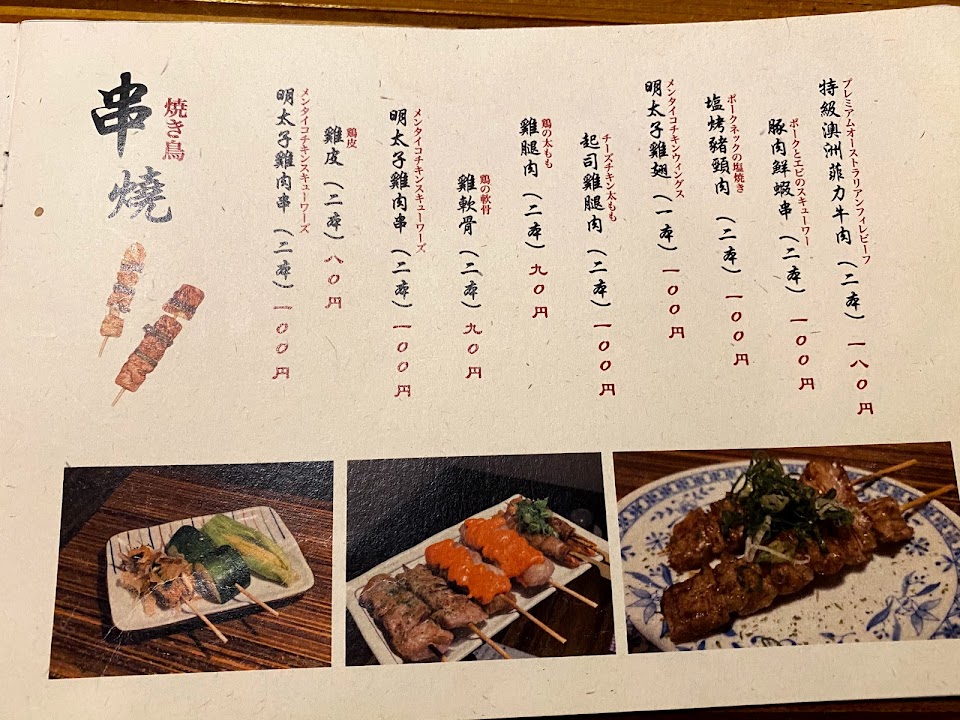 串燒
焼き鳥
プレミアムオーストラリアンフィレビーフ
特級澳洲菲力牛肉（二本）一八〇円
ポークとエビのスキューワー
豚肉鮮蝦串（二本）一〇〇円
ポークネックの塩焼き
塩烤豬頸肉（二本）一〇〇円
メンタイコチキンウィングス
明太子雞翅（一本）一〇〇円
チーズチキン太もも
起司雞腿肉（二本）一〇〇円
鶏の太もも
雞腿肉（二本）九〇円
鶏の軟骨
雞軟骨（二本）九〇円
メンタイコチキンスキューワーズ
明太子雞肉串（二本）一〇〇円
鶏皮
雞皮（二本）八〇円
メンタイコチキンスキューワーズ
明太子雞肉串（二本）一〇〇円